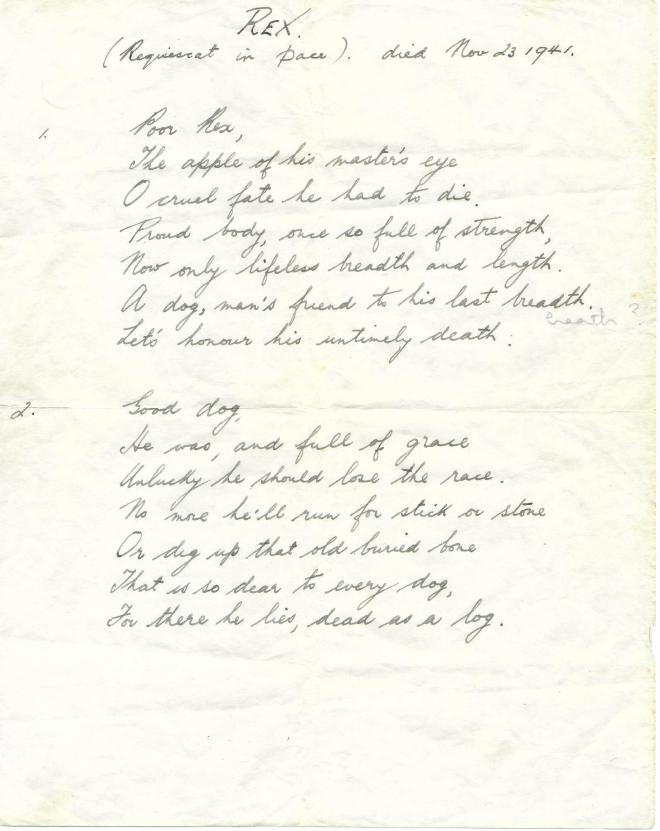 REX.
(Requiescat in pace). died Nov 23 1941.
1. Poor Rex,
The apple of his master's eye
O cruel fate he had to die.
Proud body, once so full of strength,
Now only lifeless breadth and length.
A dog, man's friend to his last breadth.
breath ?
Let's honour his untimely death.
2. Good dog,
He was, and full of grace
Unlucky he should lose the race.
No more he'll run for stick or stone
Or dig up that old buried bone
That is so dear to every dog,
For there he lies, dead as a log.